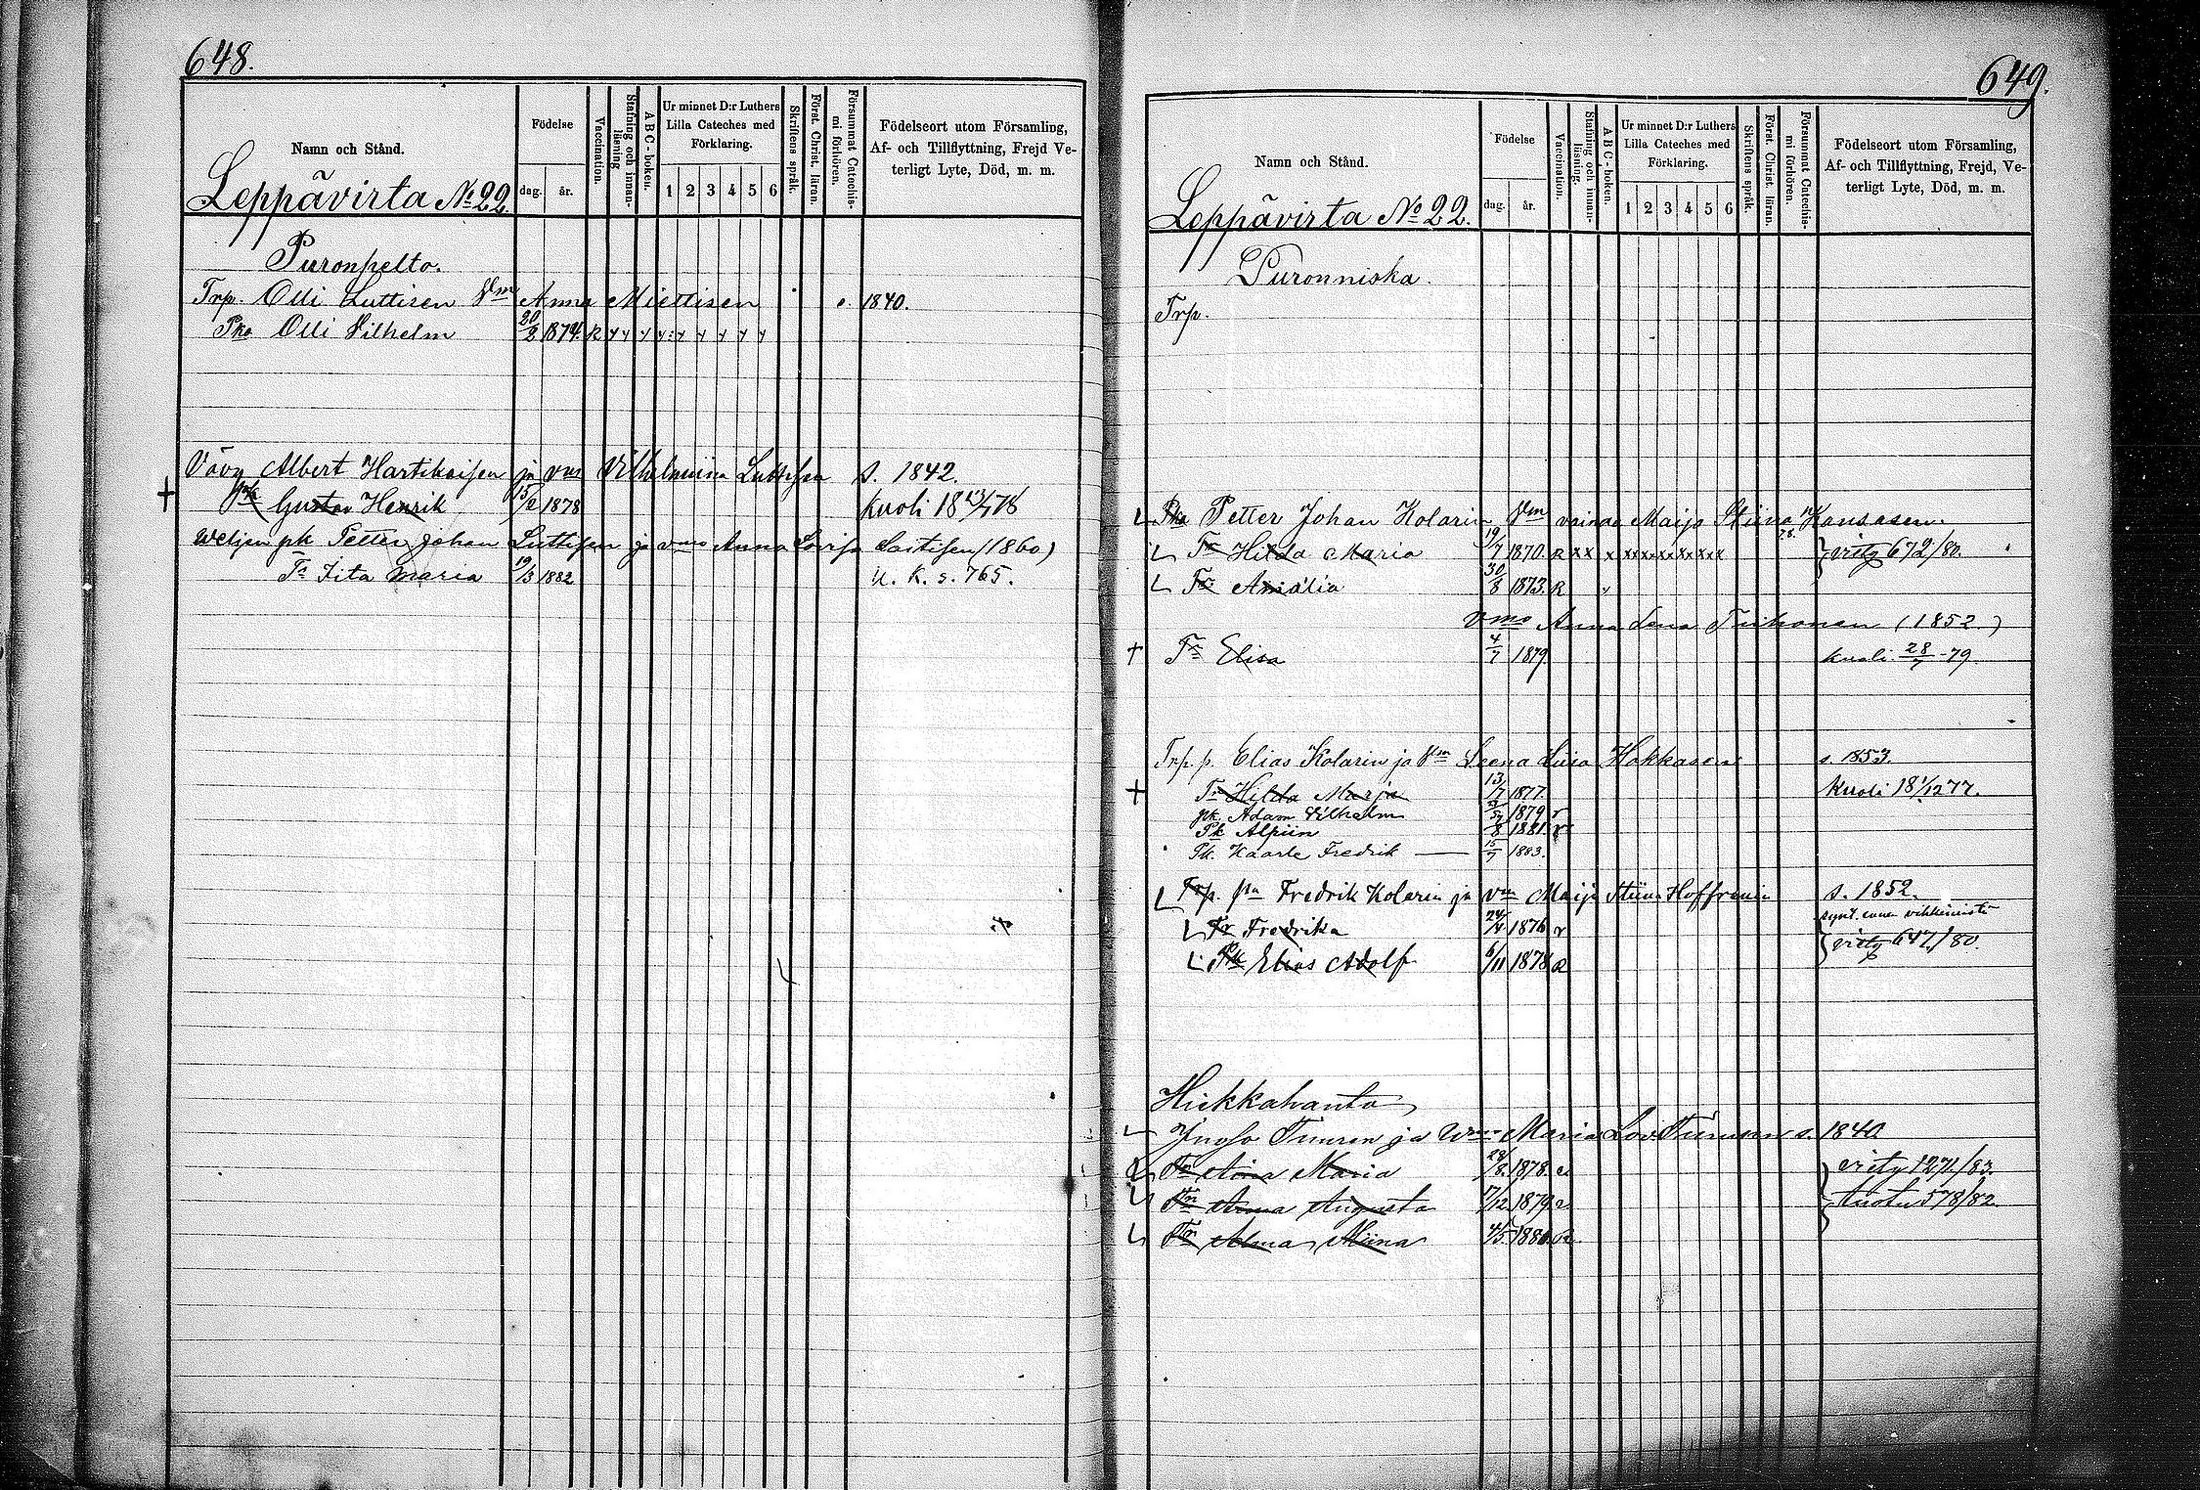 648.
Namn och Stånd.
Födelse
dag. år.
Vaccination.
Stafning och innan-läsning
A B C - boken.
Ur minnet D:r Luthers Lilla Cateches med Förklaring.
1 2 3 4 5 6
Skriftens språk.
Först. Christ. läran.
Försummat Catechis-mi förhören.
Födelseort utom Församling, Af- och Tillflyttning, Frejd Veterligt Lyte, Död, m. m.
Leppävirta No 22.
Puronpelto.
Trp. Olli Luttisen Vm Anna Miettisen 1840.
Pka Olli Vilhelm 20/2 1874. R
Vävy Albert Hartikaisen ja vm Vilhelmiina Luttisen s. 1842.
Gustav Henrik 15/2 1878 kuoli 18 13/7 78
weljen pk Petter Johan Luttisen ja vmo Anna Lovisa (1860)
Tr Iita Maria 19/3 1882 U. K. s. 765.
649.
Namn och Stånd.
Födelse
dag. år.
Vaccination.
Stafning och innan-läsning.
A B C - boken.
Ur minnet D:r Luthers Lilla Cateches med Förklaring.
1 2 3 4 5 6
Skriftens språk.
Först. Christ. läran.
Försummat Catechis-mi förhören.
Födelseort utom Församling, Af- och Tillflyttning, Frejd, Veterligt Lyte, Död, m. m.
Leppävirta No 22.
Puronniska.
Trp.
Pka Petter Johan Kolarin Vm vainaa Maija Stiina Kansasen.
Tr Hilda Maria 19/7 1870. R x x x x x x x x x erity 672/80.
Tr Amalia 30/8 1873. R
vmo Anna Lena Tiihonen (1852)
Tr Elisa 4/7 1879 kuoli 28/7 -79.
Trp. p. Elias Kolarin ja Vm Leena Liisa Hokkasen s. 1853.
Tr Hilda Marja 13/7 1877. kuoli 18 1/12 77.
pk. Adam Vilhelm 1879 r
Pk Alpiin 1881. r
Pk. Kaarle Fredrik 15/7 1883.
Trp. pn Fredrik Kolarin ja vm Maija Stiina Hoffrenin s. 1852.
Tr Fredrika 24/4 1876 r synt. enne vihkimistä
Pk Elias Adolf 6/11 1878 R erity 647/80.
Hiekkahanta
Maria Lov. s. 1840
Tr Aina Maria 1878. erity 1271/83.
Tr Anna Augusta 17/12 1879 578/82.
Tr Alma Miina